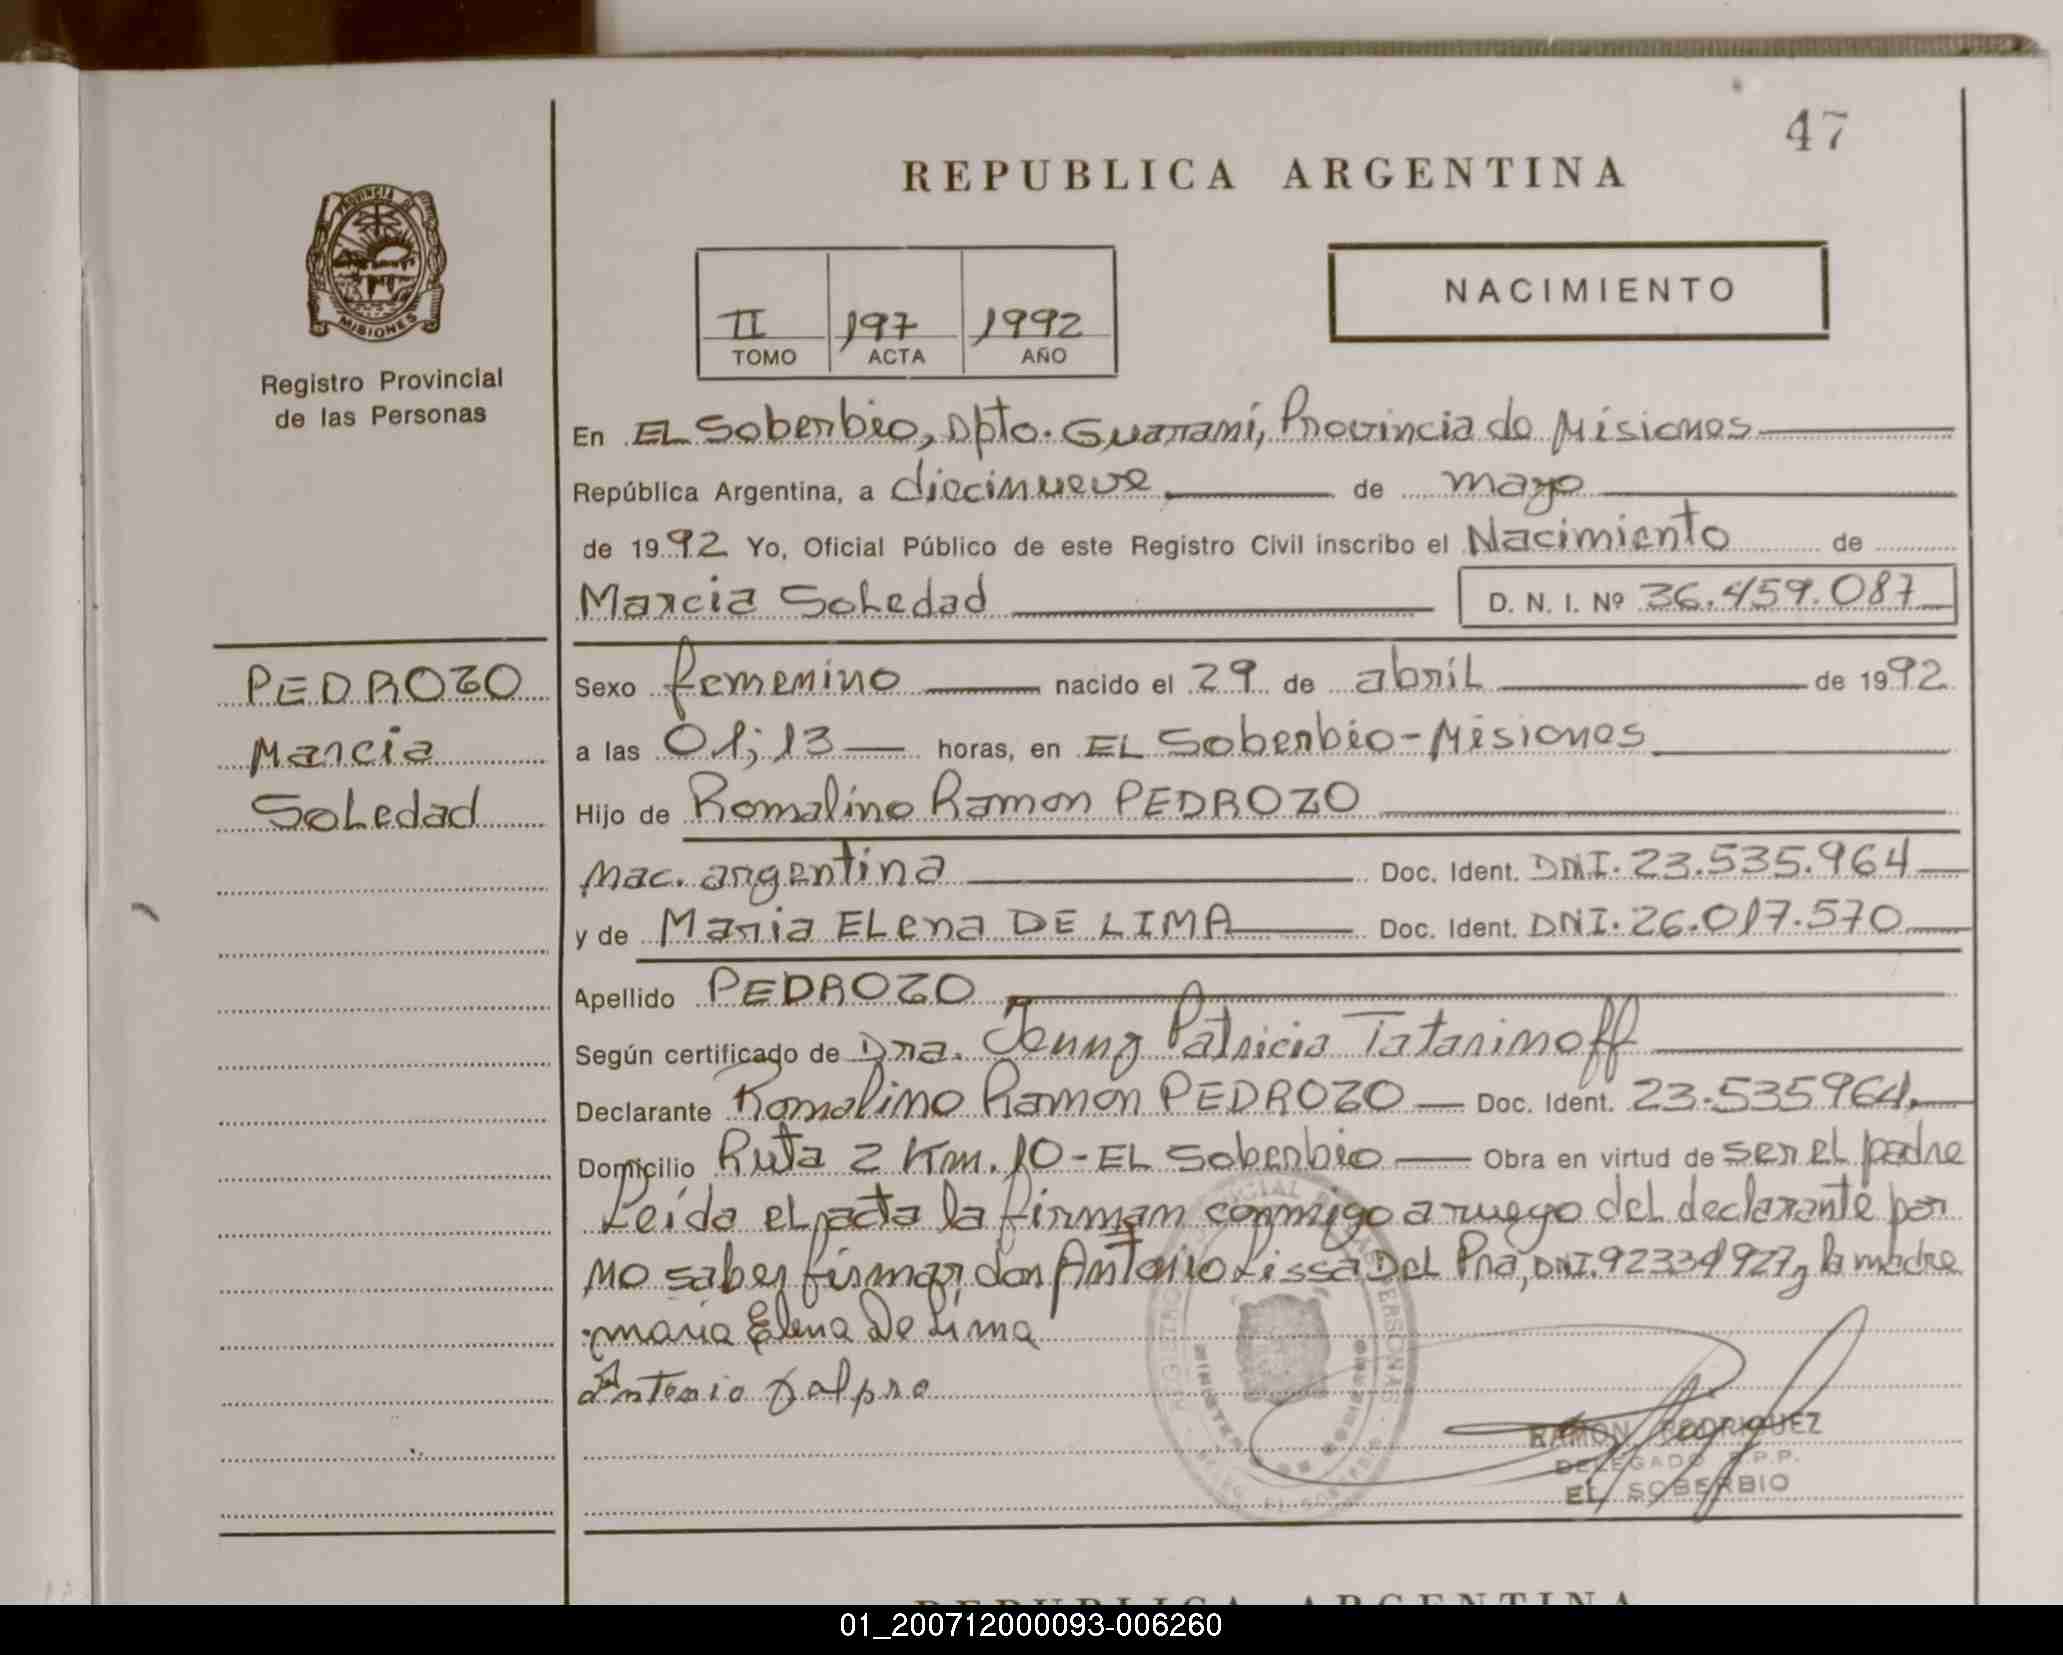 47
REPUBLICA ARGENTINA
PROVINCIA DE
MISIONES
Registro Provincial
de las Personas
II 197 1992
TOMO ACTA AÑO
NACIMIENTO
En EL Soberbio, Dpto. Guaraní, Provincia de Misiones
República Argentina, a diecinueve de mayo
de 1992 Yo, Oficial Público de este Registro Civil inscribo el Nacimiento de
Marcia Soledad D. N. I. Nº 36.459.087
PEDROZO
Marcia
Soledad
Sexo femenino nacido el 29 de abril de 1992
a las 01;13 horas, en EL Soberbio-Misiones
Hijo de Romalino Ramon PEDROZO
Nac. argentina Doc. Ident. DNI. 23.535.964
y de Maria ELena DE LIMA Doc. Ident. DNI. 26.017.570
Apellido PEDROZO
Según certificado de Dra. Jenny Patricia Tatarinoff
Declarante Romalino Ramon PEDROZO Doc. Ident. 23.535964
Domicilio Ruta 2 Km. 10-EL Soberbio Obra en virtud de ser el padre
Leída el acta la firman conmigo a ruego del declarante por
no saber firmar, don Antonio Lissa Del Pra, DNI. 92334927 y la madre
maria Elena De Lima
Antonio Dalpra
RAMON RODRIGUEZ
DELEGADO R.P.P.
EL SOBERBIO
REPUBLICA ARGENTINA
01_200712000093-006260